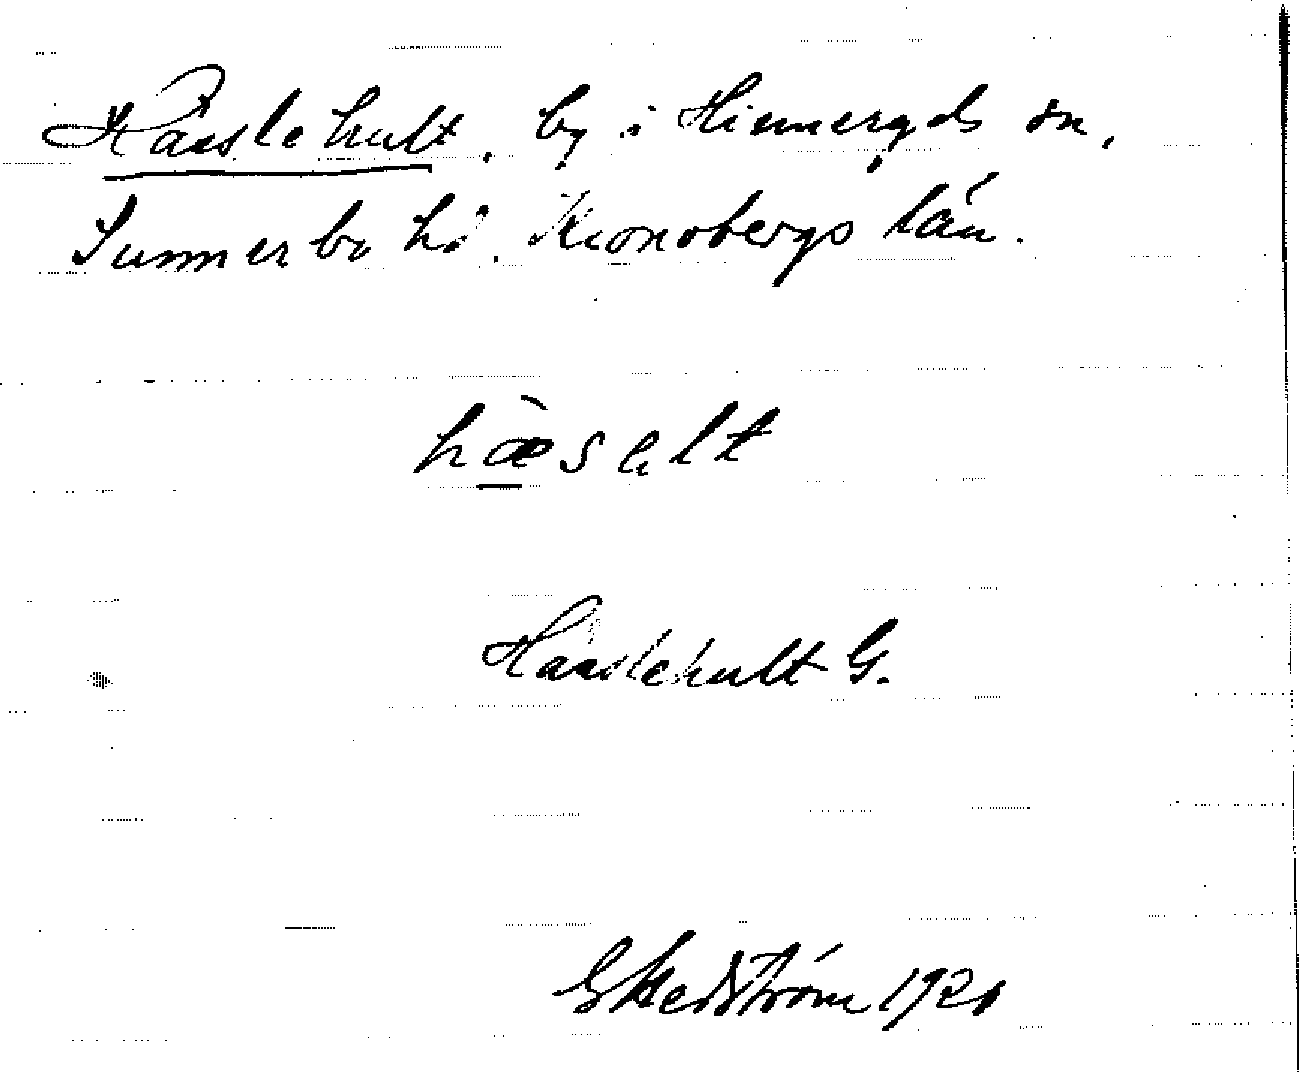 Hässlehult, by i Hinneryds sn,
Sunnerbo hd. Kronobergs län.
hæ̀sɐlt
Hässlehult G.
G Hedström 1921